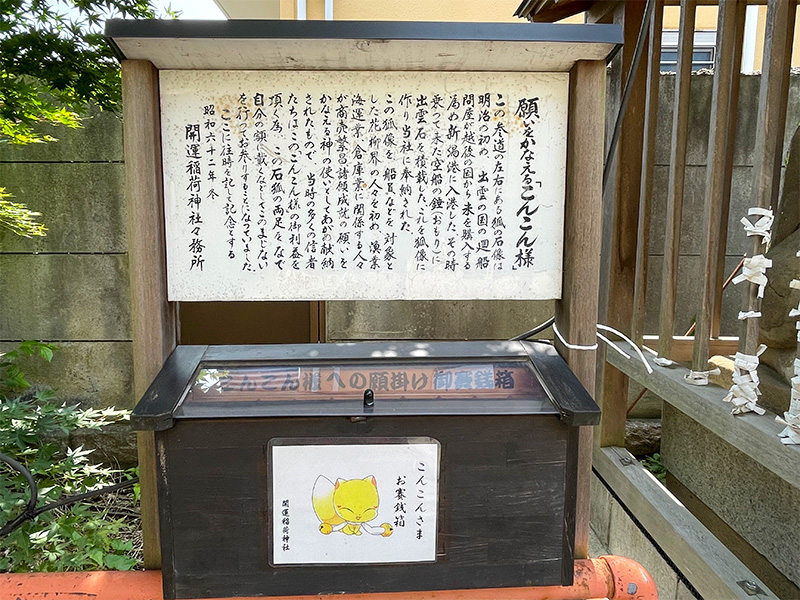 願いをかなえる「こんこん様」
この参道の左右にある狐の石像は
明治の初め、出雲の国の廻船
問屋が越後の国から米を購入する
為め新潟港に入港した。その時
乗って来た空船の錘(おもり)に
出雲石を積載した。これを狐像に
作り当社に奉納された。
この狐像を船員などを対象と
した花柳界の人々を初め、漁業
海運業、倉庫業に関係する人々
が商売繁昌諸願成就の願いを
かなえる神の使いとしてあがめ献納
されたもので、当時の多くの信者
たちはこのこんこん様の御利益を
頂く為、この石狐の両足をなで
自分の額に戴くなどしてこのまじない
を行ってお参りすることになっていました。
ここに往時を記して記念とする
昭和六十二年 冬
開運稲荷神社々務所
こんこん様への願掛け御賽銭箱
こんこんさま
お賽銭箱
開運稲荷神社